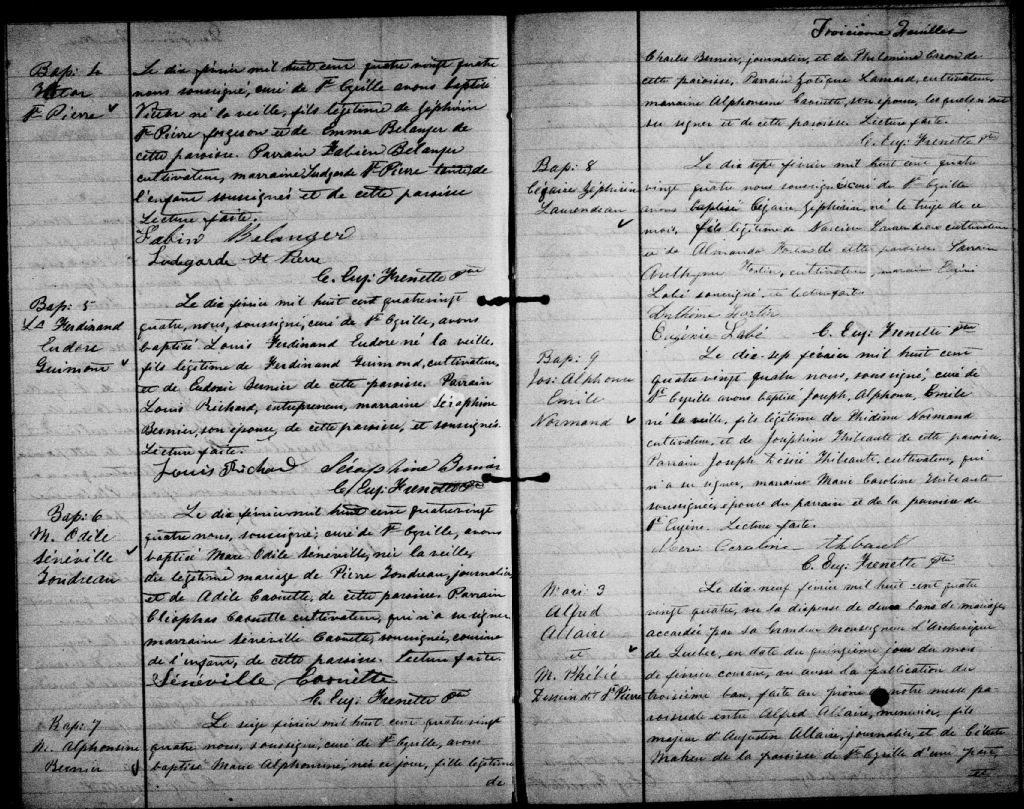 Bap: 4
Victor
St Pierre
Le dix février mil huit cent quatre vingt quatre
nous soussigné, curé de St Cyrille avons baptisé
Victor né la veille, fils légitime de Zéphirin
St Pierre forgeron et de Emma Belanger de
cette paroisse. Parrain Fabien Bélanger
cultivateur, marraine Ludgarde St Pierre tante de
l'enfant soussignés et de cette paroisse
Lecture faite.
Fabien Belanger
Ludgarde St Pierre
C. Eug: Frenette Ptre
Bap: 5
Ls Ferdinand
Eudore
Guimond
Le dix février mil huit cent quatre vingt
quatre, nous, soussigné, curé de St Cyrille, avons
baptisé Louis Ferdinand Eudore né la veille
fils légitime de Ferdinand Guimond, cultivateur,
et de Eudoxie Bernier de cette paroisse. Parrain
Louis Richard, entrepreneur, marraine Séraphine
Bernier, son épouse, de cette paroisse, et soussignés.
Lecture faite.
Louis Richard Séraphine Bernier
C. Eug: Frenette Ptre
Bap: 6
M. Odile
Sénéville
Gondreau
Le dix février mil huit cent quatre vingt
quatre nous, soussigné, curé de St Cyrille, avons
baptisé, Marie Odile Sénéville, née la veille,
du légitime mariage de Pierre Gondreau, journalier
et de Adèle Caouette, de cette paroisse. Parrain
Cléophas Caouette cultivateur, qui n'a su signer
marraine Sénéville Caouette, soussignée, cousine
de l'enfant, de cette paroisse. Lecture faite.
Sénéville Caouette
C. Eug: Frenette Ptre
Bap: 7
M. Alphonsine
Bernier
Le seize février mil huit cent quatre vingt
quatre nous, soussigné, curé de St Cyrille, avons
baptisé Marie Alphonsine, née ce jour, fille légitime
de
Troisième Feuillet
Charles Bernier, journalier, et de Philomène Caron de
cette paroisse. Parrain Zotique Lamard, cultivateur,
marraine Alphonsine Caouette, son épouse, lesquels n'ont
su signer et de cette paroisse Lecture faite.
C. Eug: Frenette Ptre
Bap: 8
Cézaire Zéphirin
Laurendeau
Le dix sept février mil huit cent quatre
vingt quatre nous soussigné curé de St Cyrille
avons baptisé Cézaire Zéphirin, né le treize de ce
mois, fils légitime de Narcisse Laurendeau cultivateur
et de Almanda Fortin de cette paroisse. Parrain
Anthyme Fortin, cultivateur, marraine Eugénie
Labé soussignés, et lecture faite.
Anthime Fortin
Eugénie Labé C. Eug: Frenette Ptre
Bap: 9
Jos: Alphonse
Emile
Normand
Le dix-sep février mil huit cent
quatre vingt quatre nous, soussigné, curé de
St Cyrille avons baptisé Joseph, Alphonse, Emile
né la veille, fils légitime de Phidime Normand
cultivateur, et de Joséphine Thibeaute de cette paroisse.
Parrain Joseph Désiré Thibeaute, cultivateur, qui
n'a su signer, marraine Marie Caroline Thibeaute
soussignée, épouse du parrain et de la paroisse de
St Eugène. Lecture faite.
Marie Coraline Thibault
C. Eug: Frenette Ptre
Mari 3
Alfred
Allaire
et
M. Phébée
Dessein dt St Pierre
Le dix-neuf février mil huit cent quatre
vingt quatre, vu la dispense de deux bans de mariage
accordée par sa Grandeur Monseigneur d'Archevêque
de Québec, en date du quinzième jour du mois
de février courant, vu aussi la publication du
troisième ban, faite au prône de notre messe pa-
roissiale entre Alfred Allaire, menuisier, fils
majeur d'Augustin Allaire, journalier, et de Céleste
Maheu de la paroisse de St Cyrille d'une part
et